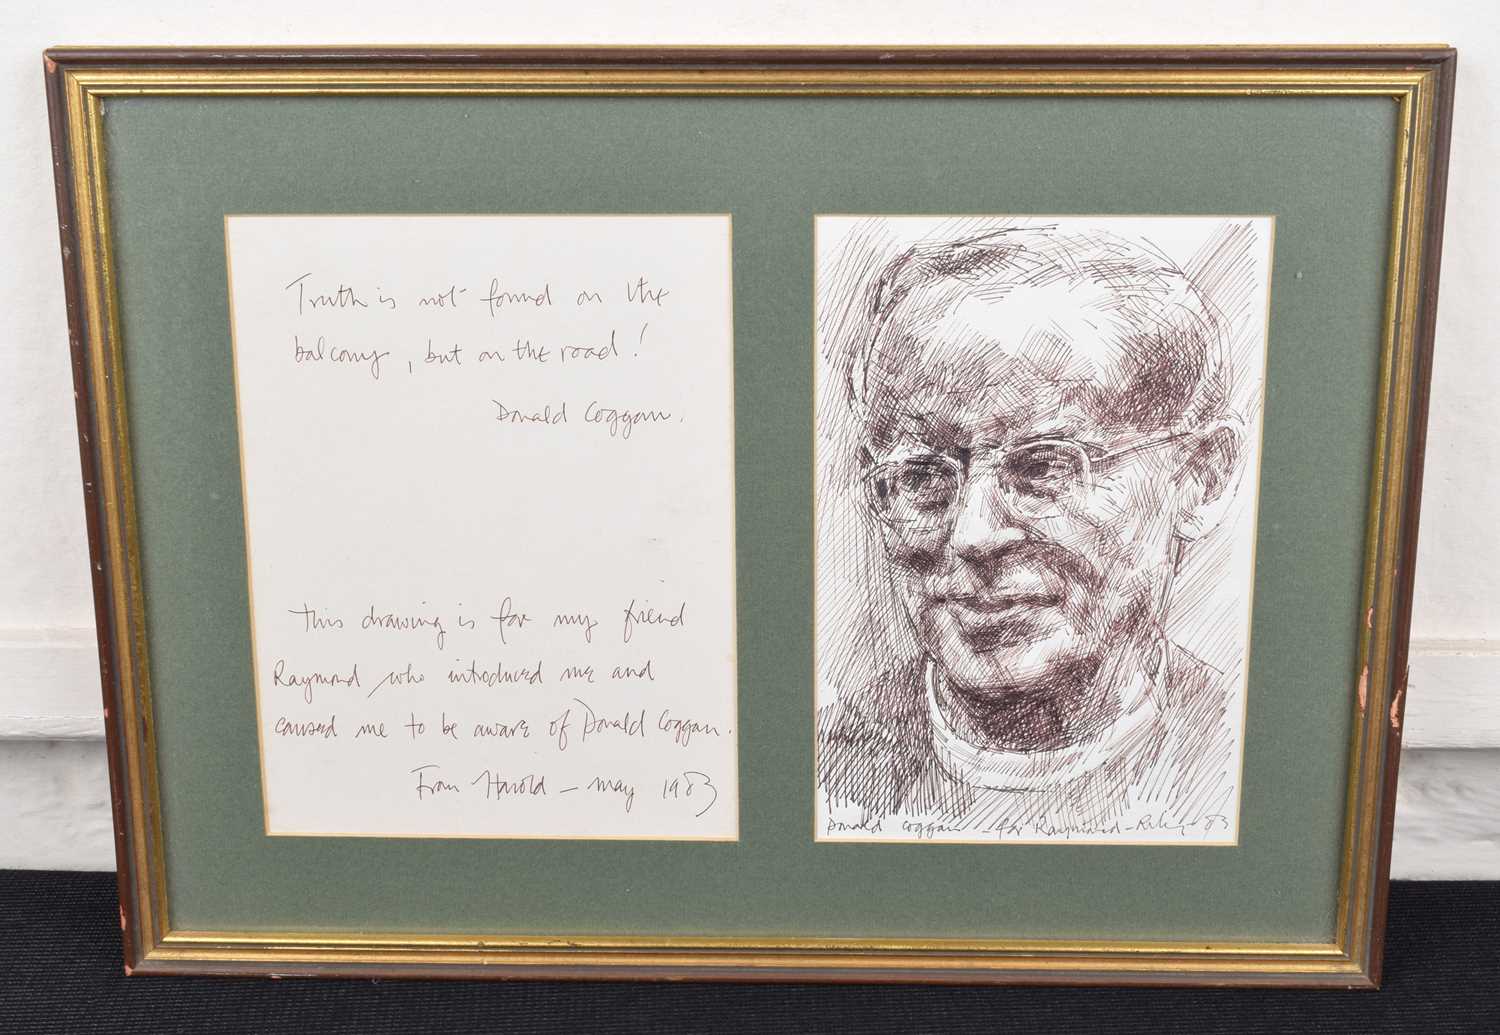 Truth is not found on the
balcony, but on the road!
Donald Coggan.
This drawing is for my friend
Raymond who introduced me and
caused me to be aware of Donald Coggan.
From Harold – May 1983
Donald Coggan – for Raymond – Riley 83